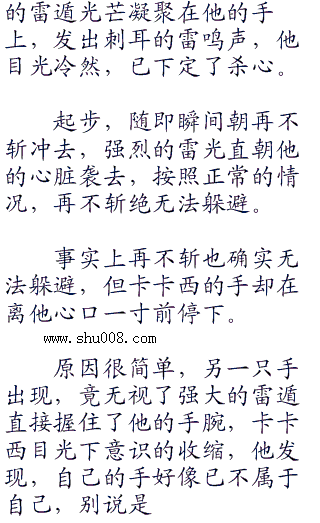 的雷遁光芒凝聚在他的手
上，发出刺耳的雷鸣声，他
目光冷然，已下定了杀心。
起步，随即瞬间朝再不
斩冲去，强烈的雷光直朝他
的心脏袭去，按照正常的情
况，再不斩绝无法躲避。
事实上再不斩也确实无
法躲避，但卡卡西的手却在
离他心口一寸前停下。
www.shu008.com
原因很简单，另一只手
出现，竟无视了强大的雷遁
直接握住了他的手腕，卡卡
西目光下意识的收缩，他发
现，自己的手好像已不属于
自己，别说是